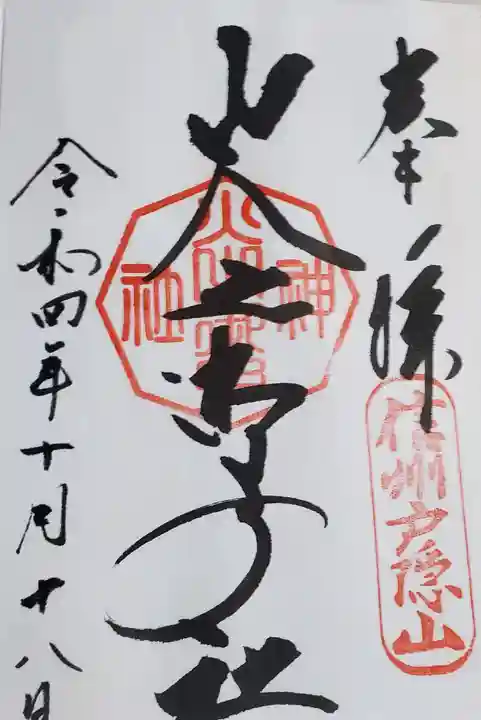 奉拝
信州戸隠山
火之御子社
神
社
令和四年十月十八日